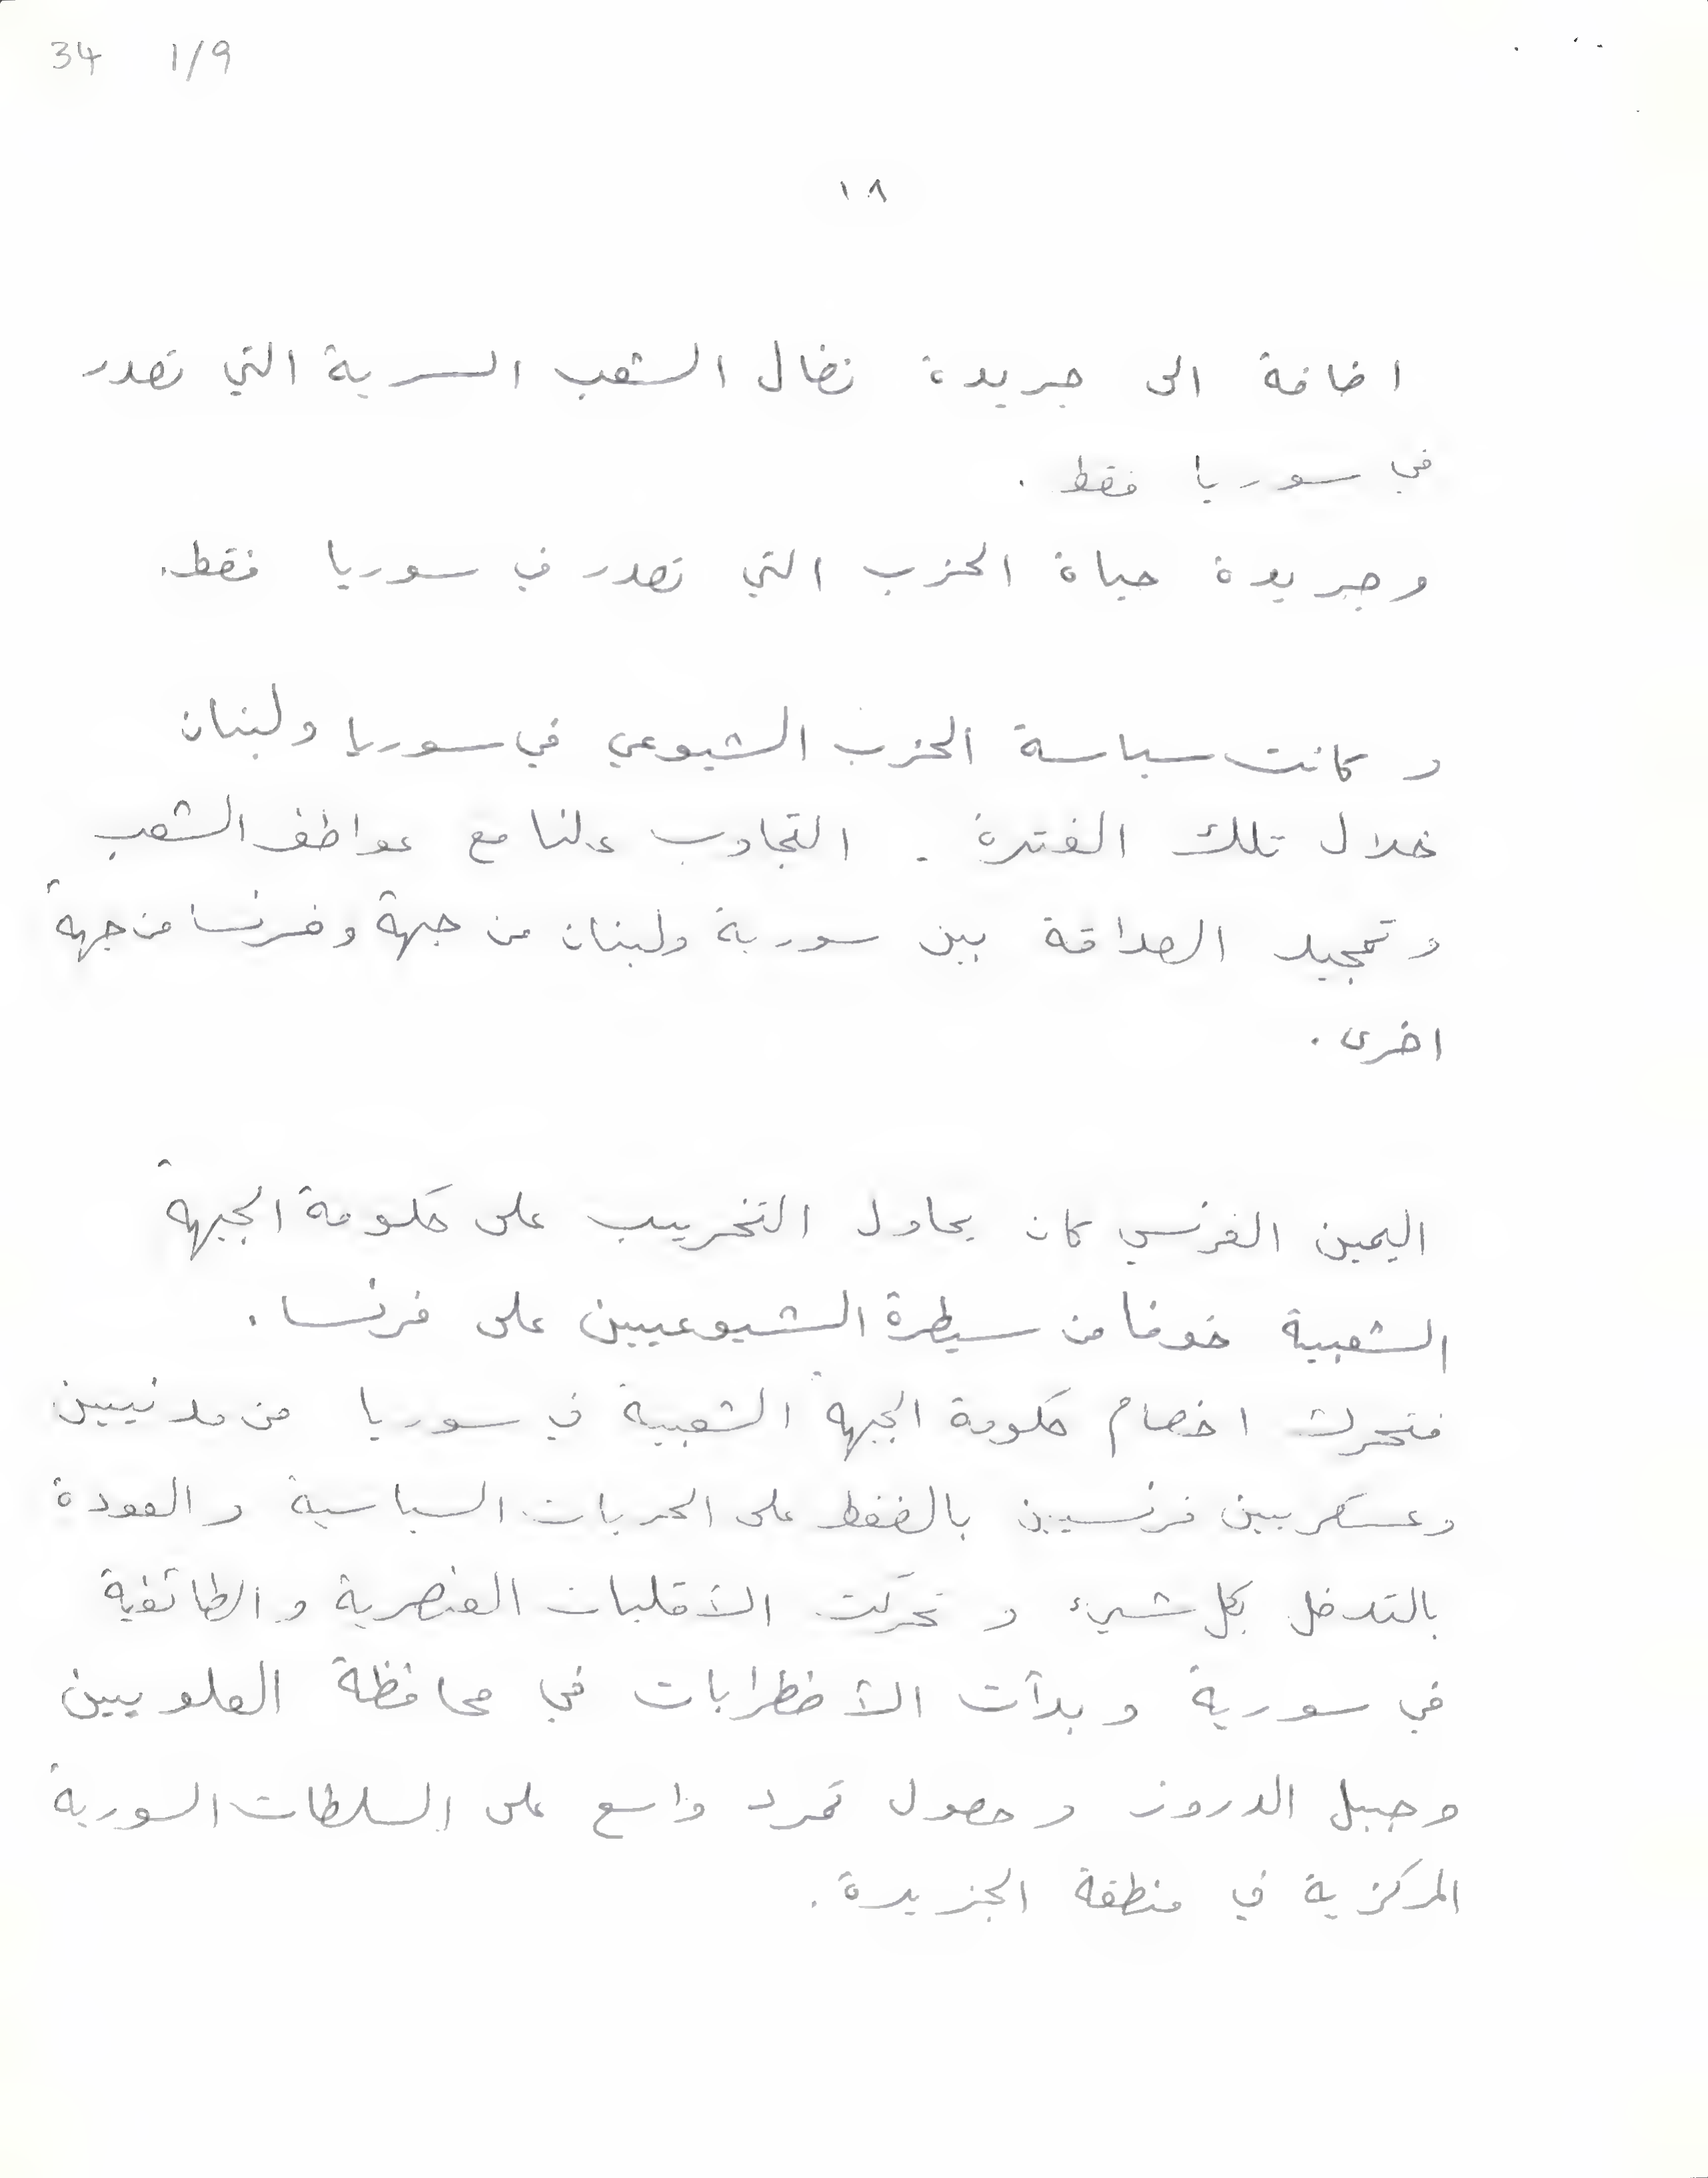 34 1/9
١٨
اضافة الى جريدة نضال الشعب السرية التي تصدر
في سوريا فقط .
وجريدة حياة الحزب التي تصدر في سوريا فقط.
و كانت سياسة الحزب الشيوعي في سوريا ولبنان
خلال تلك الفترة . التجاوب علنا مع عواطف الشعب
وتمجيد الصداقة بين سورية ولبنان من جهة وفرنسا من جهة
اخرى .
اليمين الفرنسي كان يحاول التخريب على حكومة الجبهة
الشعبية خوفا من سيطرة الشيوعيين على فرنسا .
فتحرك اخصام حكومة الجبهة الشعبية في سوريا من مدنيين
وعسكريين فرنسيين بالضغط على الحريات السياسية والعودة
بالتدخل بكل شيء و تحركت الأقليات العنصرية والطائفية
في سورية و بدأت الأضطرابات في محافظة العلويين
وجبل الدروز و حصول تمرد واسع على السلطات السورية
المركزية في منطقة الجزيرة .